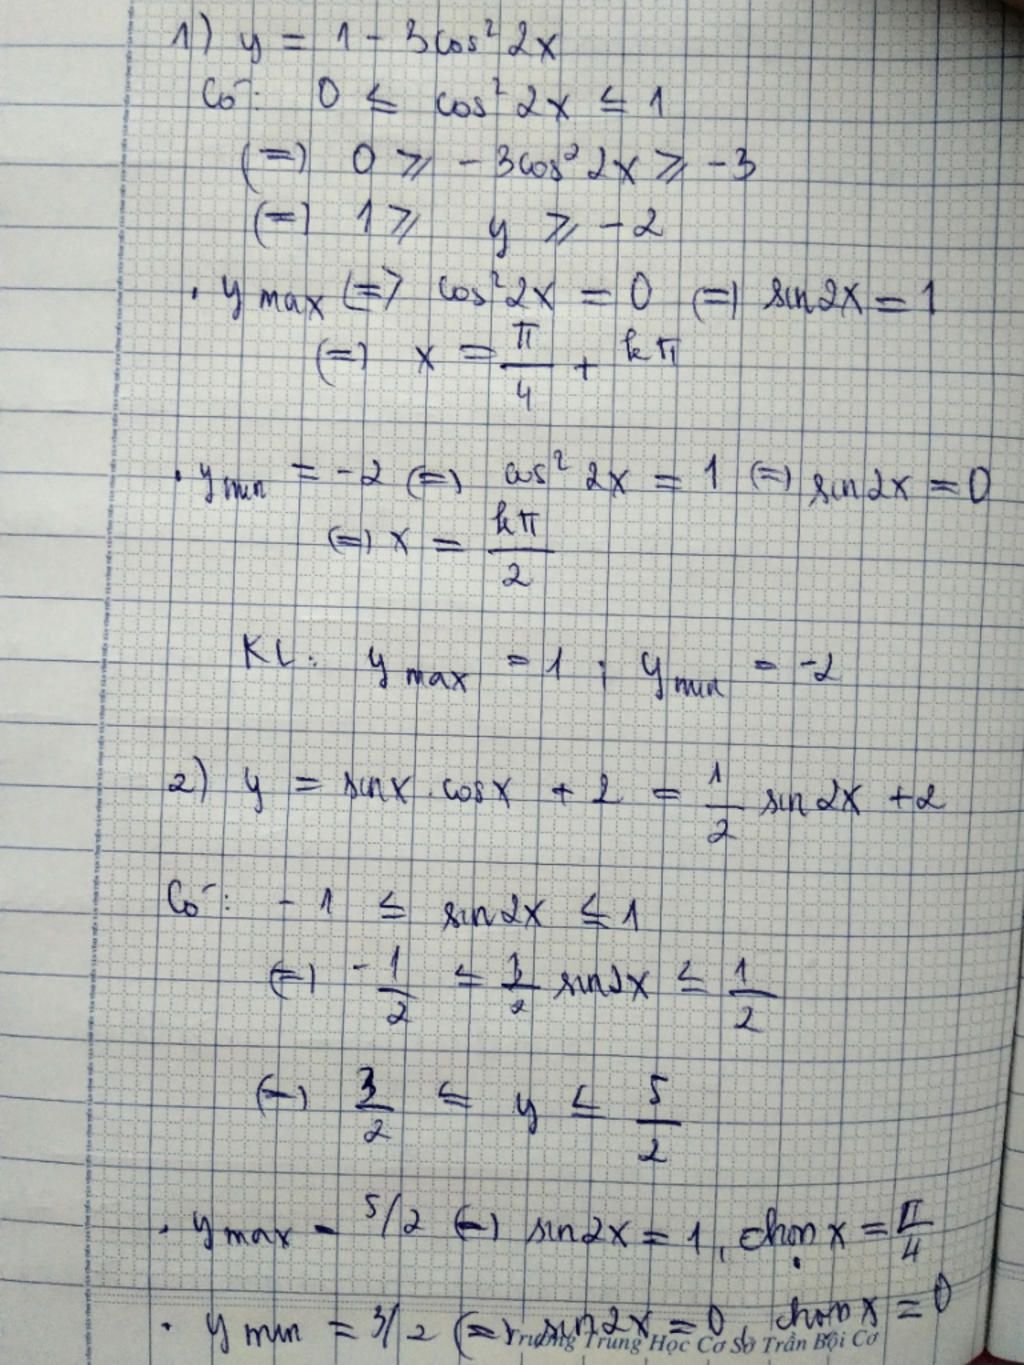 1) y = 1 - 3cos² 2x
Có: 0 ≤ cos² 2x ≤ 1
(=) 0 ≥ - 3cos² 2x ≥ -3
(=) 1 ≥ y ≥ -2
. y max (=> cos² 2x = 0 (=) sin 2x = 1
(=) x = π/4 + kπ
. y min = -2 (=) cos² 2x = 1 (=) sin 2x = 0
(=) x = kπ/2
KL: y max = 1 ; y min = -2
2) y = sin x . cos x + 2 = 1/2 sin 2x + 2
Có: - 1 ≤ sin 2x ≤ 1
(=) - 1/2 ≤ 1/2 sin 2x ≤ 1/2
(=) 3/2 ≤ y ≤ 5/2
. y max = 5/2 (=) sin 2x = 1, chọn x = π/4
. y min = 3/2 (=) sin 2x = 0, chọn x = 0
Trường Trung Học Cơ Sở Trần Bội Cơ